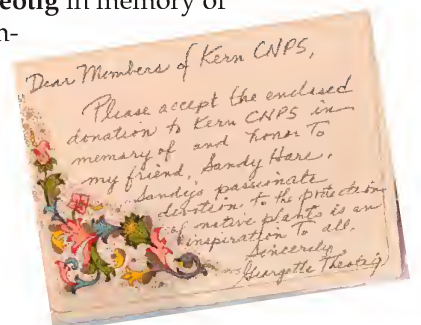 eotig in memory of
n-
Dear Members of Kern CNPS,
Please accept the enclosed
donation to Kern CNPS in
memory of and honor to
my friend, Sandy Hare.
Sandy's passionate
devotion to the protection
of native plants is an
inspiration to all.
Sincerely,
Georgette Theotig